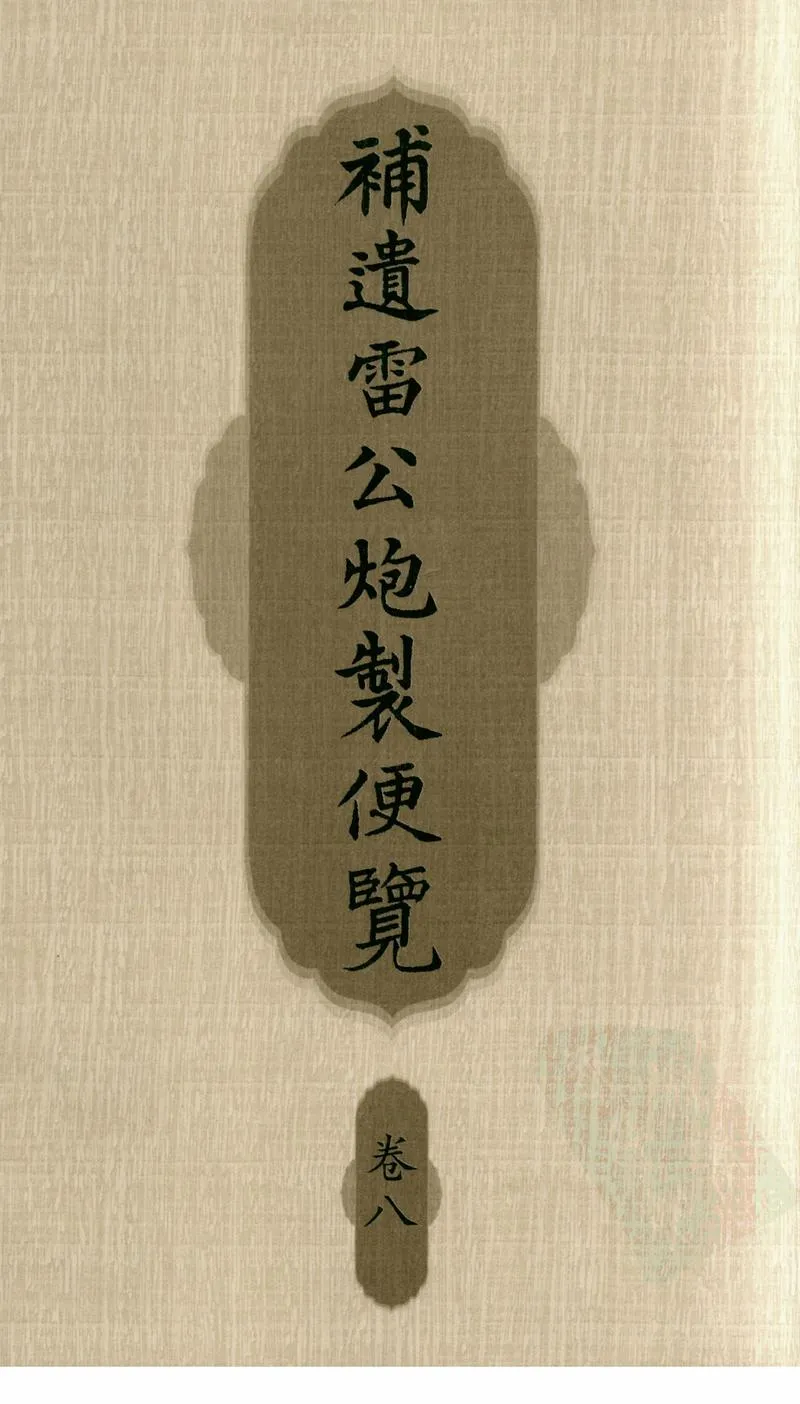 補遺雷公炮製便覽
卷八